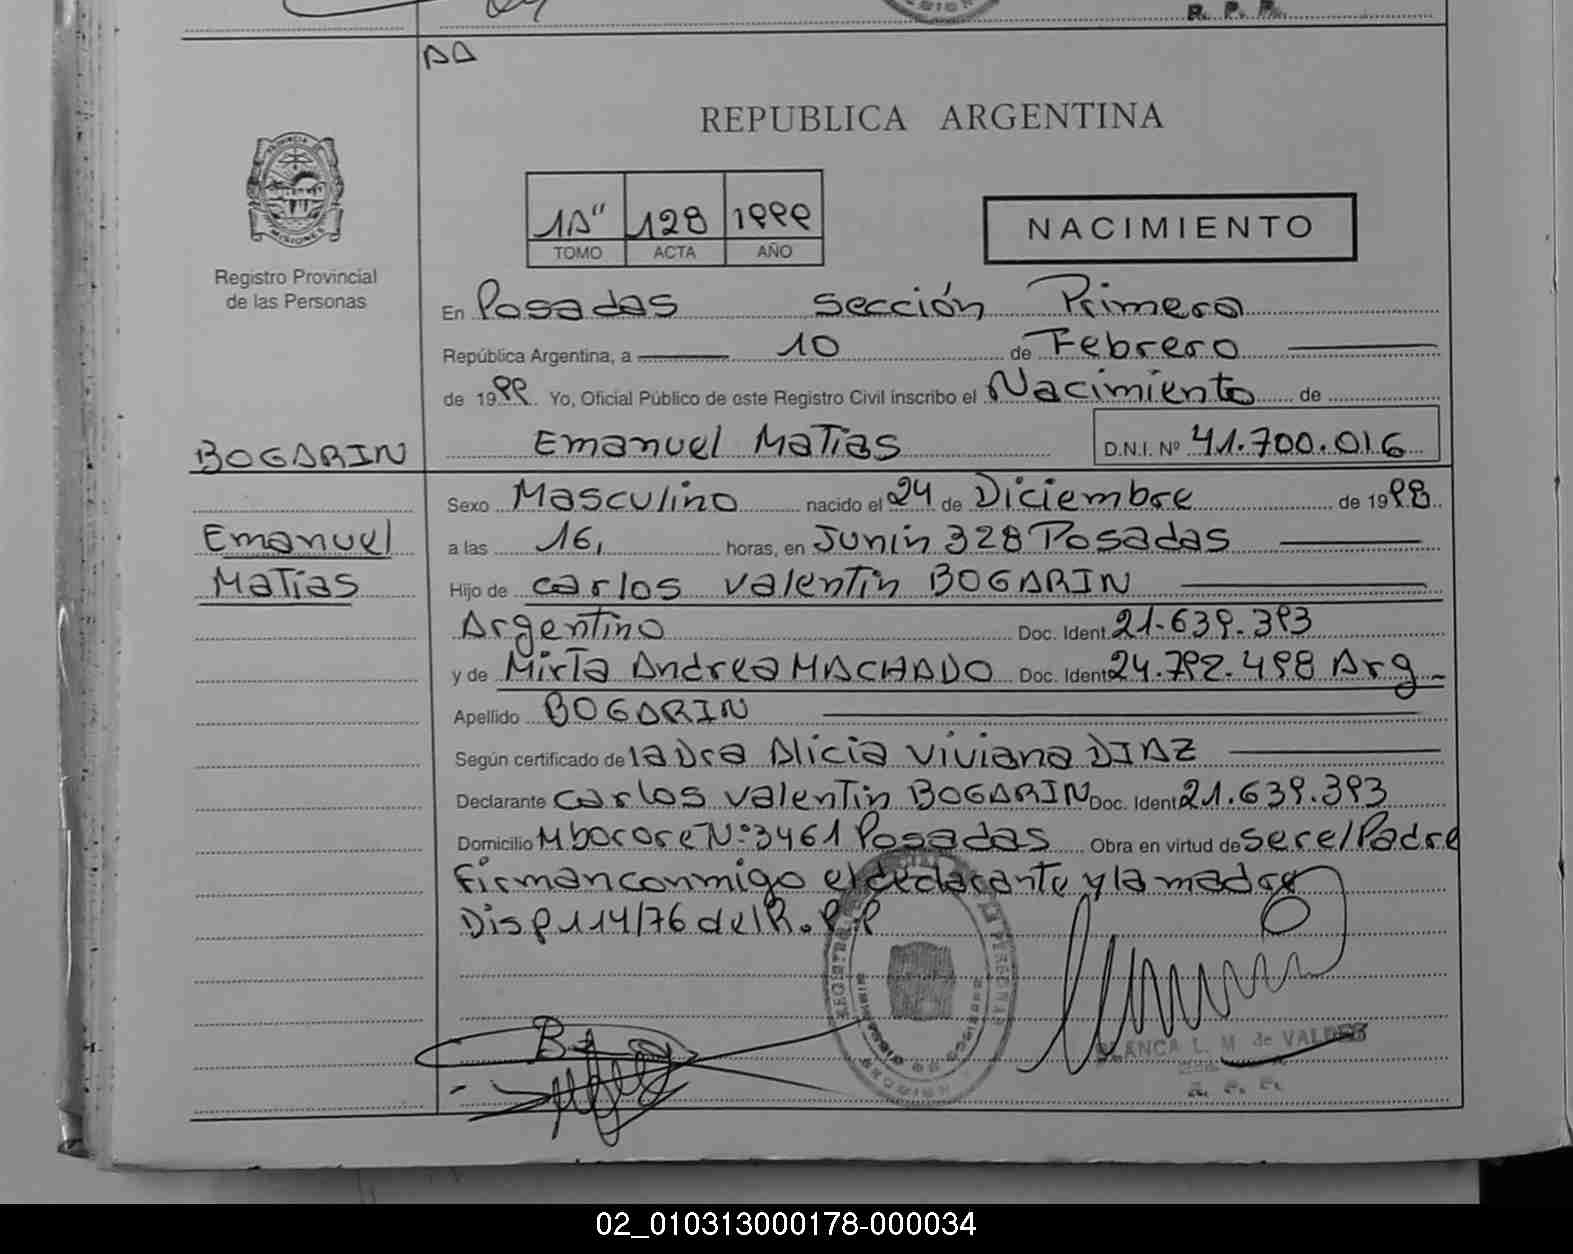 R. P. P.
AA
REPUBLICA ARGENTINA
PROVINCIA DE
MISIONES
Registro Provincial
de las Personas
1A" 128 1999
TOMO ACTA AÑO
NACIMIENTO
En Posadas sección Primera
República Argentina, a 10 de Febrero
de 1999. Yo, Oficial Público de este Registro Civil inscribo el Nacimiento de
BOGARIN Emanuel Matías D.N.I. Nº 41.700.016
Sexo Masculino nacido el 24 de Diciembre de 1998
Emanuel a las 16, horas, en Junín 328 Posadas
Matías Hijo de carlos valentín BOGARIN
Argentino Doc. Ident. 21.639.393
y de Mirta Andrea MACHADO Doc. Ident. 24.792.498 Arg
Apellido BOGARIN
Según certificado de la Dra Alicia viviana DIAZ
Declarante carlos valentín BOGARIN Doc. Ident. 21.639.393
Domicilio Mbocore Nº 3461 Posadas Obra en virtud de ser el Padre
Firman conmigo el declarante y la madre
Disp 114/76 del R.P.P
BLANCA L. M de VALDES
R. P. P.
02_010313000178-000034